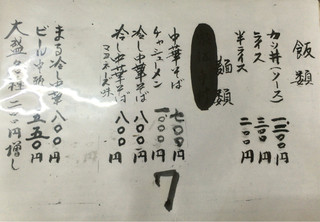 飯類
カツ丼(ソース) 一、一〇〇円
ライス 三〇〇円
半ライス 二〇〇円
麺類
中華そば 七〇〇円
チャシューメン 一、〇〇〇円
冷し中華そば 八〇〇円
冷し中華そば 八〇〇円
マヨネーズ
まる冷し中華 八〇〇円
ビール 五五〇円
大盛各種 二〇〇円増し
7